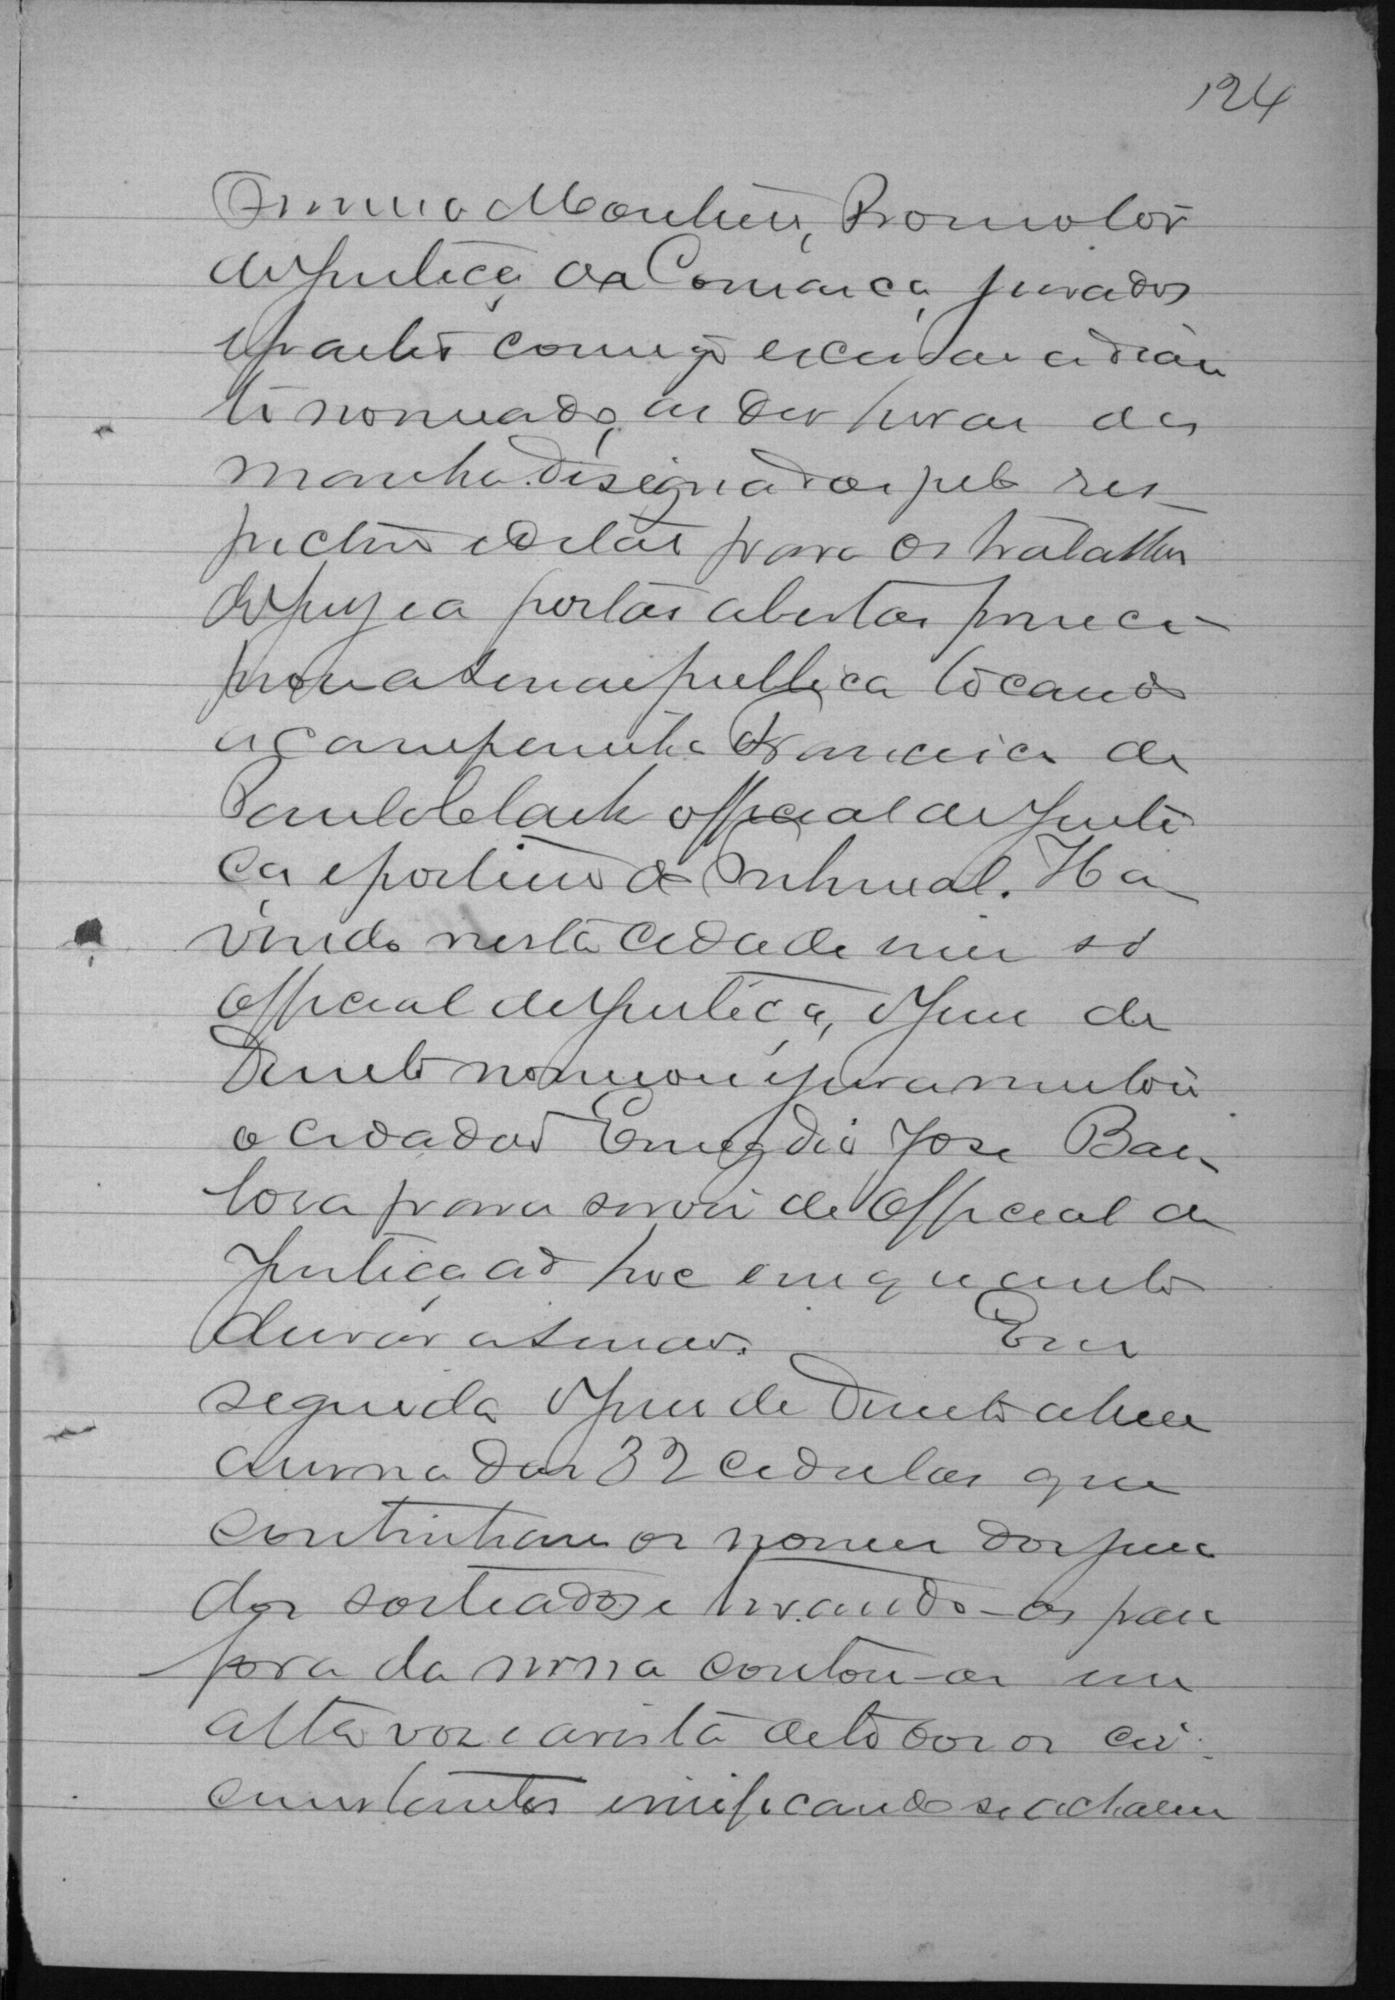 124
Firmino Monteiro, Promotor
de Justiça da Comarca, jurados
e partes comigo escrivão adian
te nomeado, as dez horas da
manhã designadas pelo res-
pectivo edital para os trabalhos
do jury e a portas abertas princi
piou a sessão publica tocando
a campainha Francisco de
Paula official de Justi
ça e porteiro do Tribunal. Ha
vendo nesta cidade um só
official de Justiça, o Juiz de
Direito nomeou e juramentou
o cidadão Emygdio José Bar
bosa para servir de official de
Justiça ad hoc emquanto
durar a sessão. Em
seguida o Juiz de Direito abriu
a urna das 32 cedulas que
continham os nomes dos jura
dos sorteados e tirando-as para
fora da urna contou-as em
alta voz e a vista de todos os cir
cumstantes e verificando se acharem